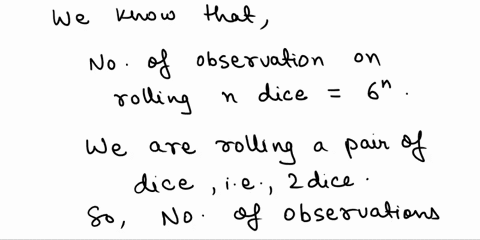 We know that,
No. of observation on
rolling n dice = 6ⁿ.
We are rolling a pair of
dice, i.e., 2 dice.
So, No. of observations